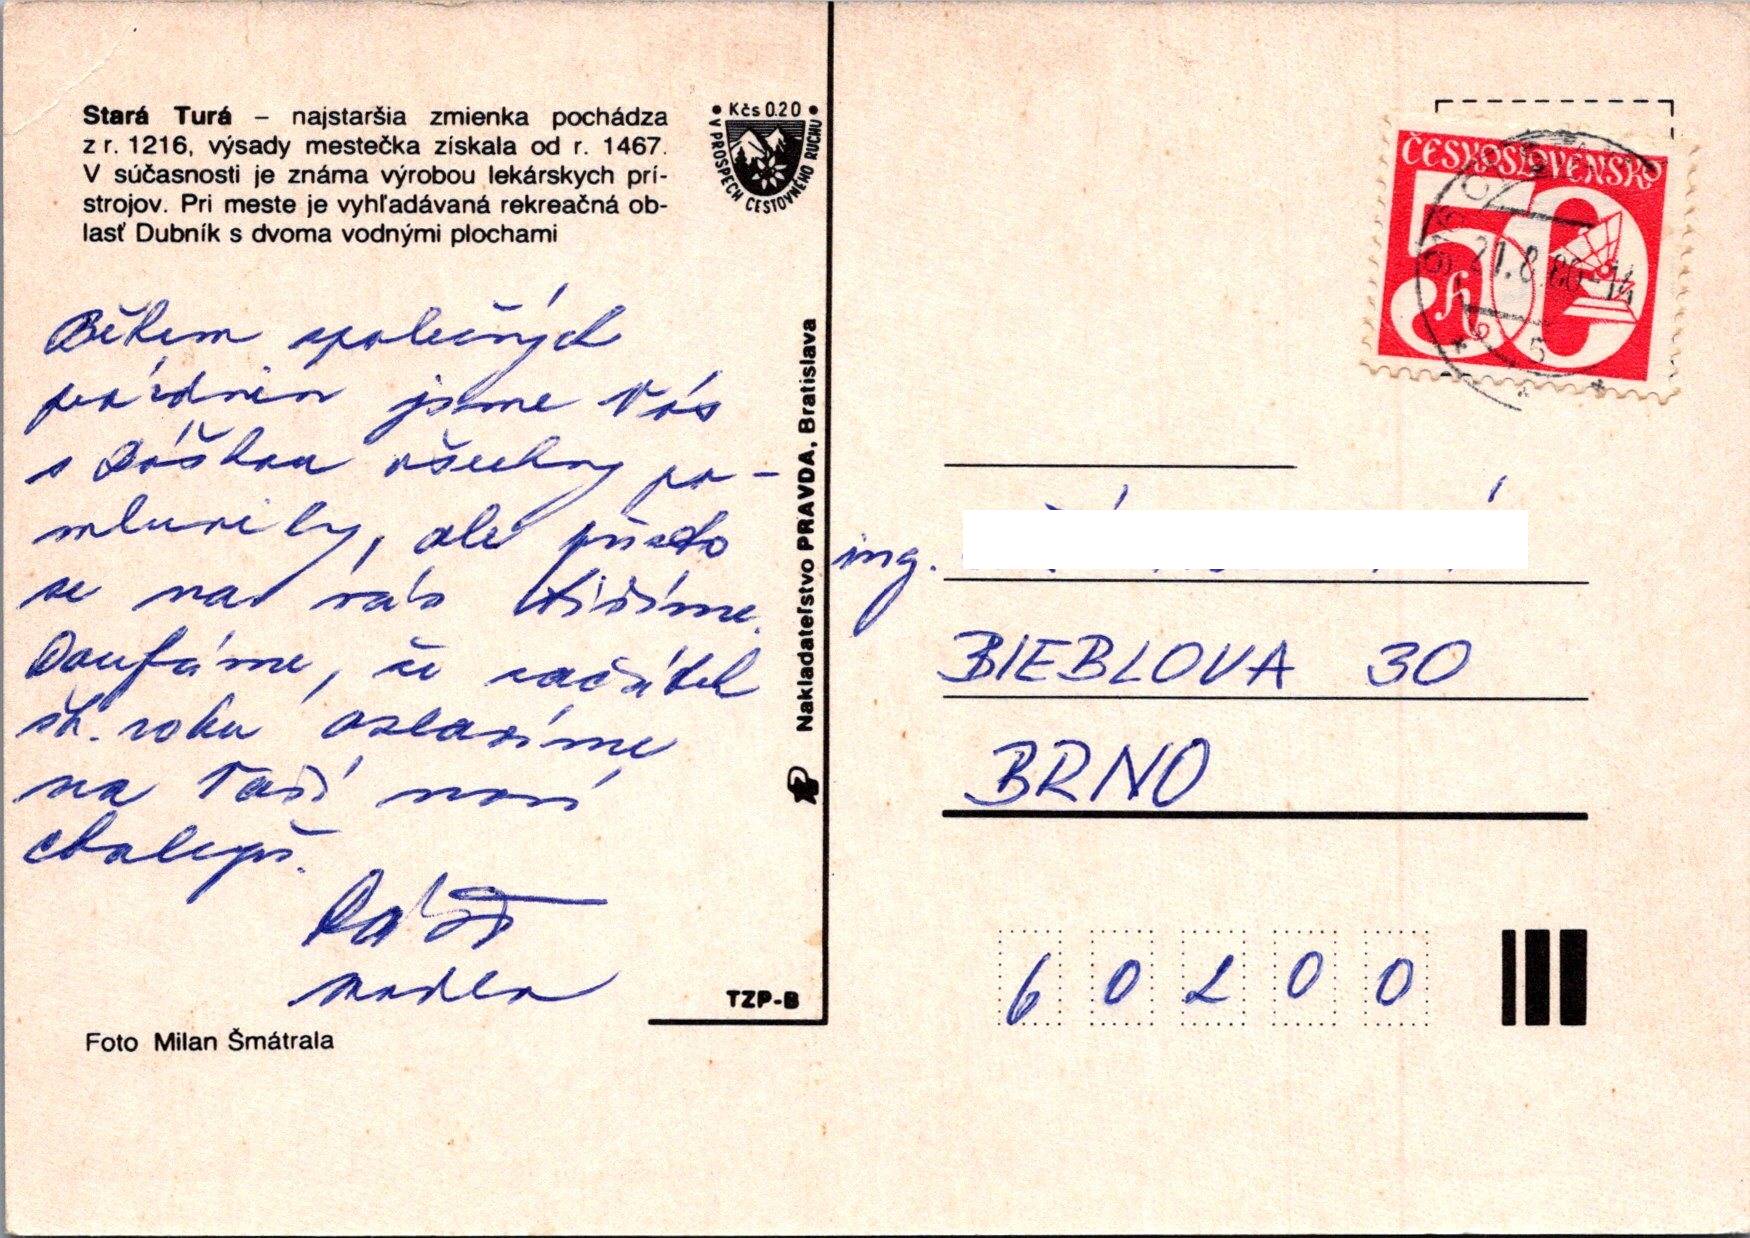 Stará Turá – najstaršia zmienka pochádza
z r. 1216, výsady mestečka získala od r. 1467.
V súčasnosti je známa výrobou lekárskych prí-
strojov. Pri meste je vyhľadávaná rekreačná ob-
lasť Dubník s dvoma vodnými plochami
• Kčs 0.20 •
V PROSPECH CESTOVNÉHO RUCHU
Během společných
prázdnin jsme Vás
s všechny po-
mluvily, ale přesto
se na vás těšíme.
Doufáme, že začátek
šk. roku oslavíme
na Vaší nové
chalupě.
Foto Milan Šmátrala
TZP-B
Nakladateľstvo PRAVDA, Bratislava
ČESKOSLOVENSKO
50 h
21.8.80-14
ing.
BIEBLOVA 30
BRNO
60200